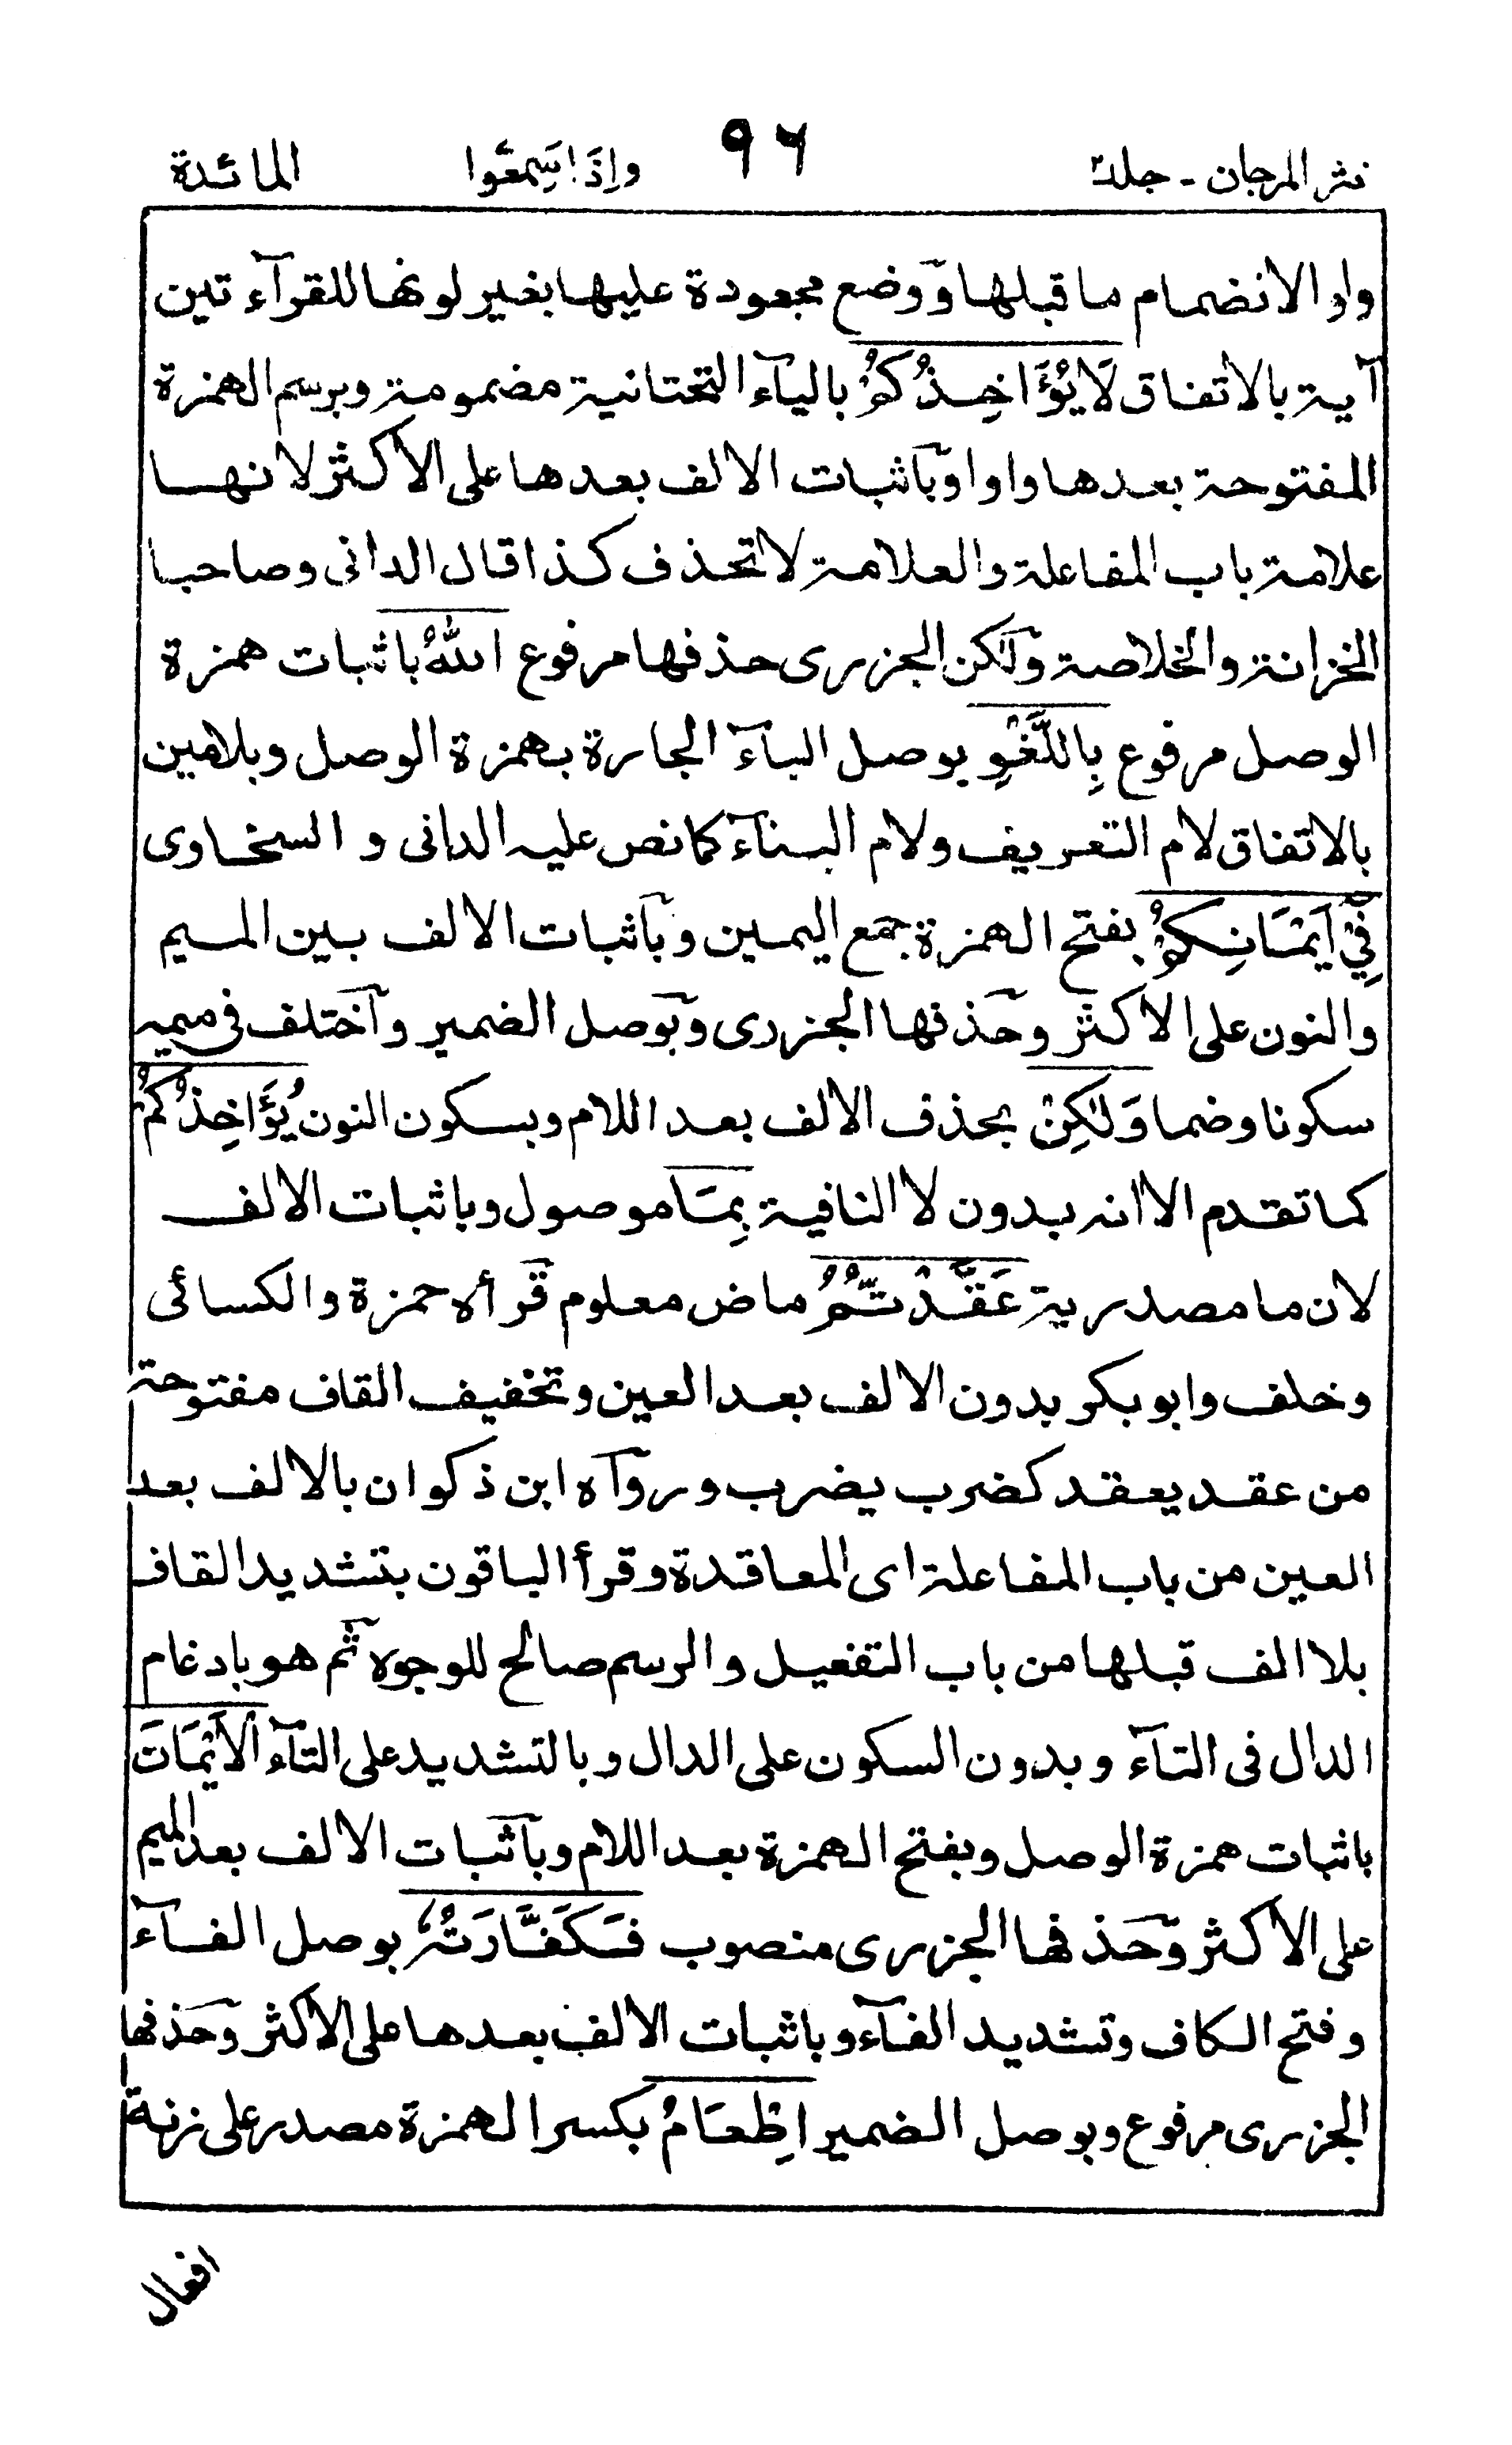 نثر المرجان - جلد٢ ٩٦ وإذا سمعوا المائدة
واو الانضمام ما قبلها ووضع مجعودة عليها بغير لونها للقرآءتين
آية بالاتفاق لَا يُؤَاخِذُكُمُ بالياء التحتانية مضمومة وبرسم الهمزة
المفتوحة بعدها واوا وباثبات الالف بعدها على الاكثر لانها
علامة باب المفاعلة والعلامة لا تحذف كذا قال الدانى وصاحبا
الخزانة والخلاصة ولكن الجزرى حذفها مرفوع اللهُ باثبات همزة
الوصل مرفوع بِاللَّغْوِ بوصل الباء الجارة بهمزة الوصل وبلامين
بالاتفاق لام التعريف ولام البناء كما نص عليه الدانى و السخاوى
فِيْ اَيْمَانِكُمْ بفتح الهمزة جمع اليمين وباثبات الالف بين الميم
والنون على الاكثر وحذفها الجزرى وبوصل الضمير واختلف فى ميمه
سكونا وضما وَلٰكِنْ بحذف الالف بعد اللام وبسكون النون يُؤَاخِذُكُمْ
كما تقدم الا انه بدون لا النافية بِمَا موصول وباثبات الالف
لان ما مصدرية عَقَّدْتُّمُ ماض معلوم قرأه حمزة والكسائى
وخلف وابو بكر بدون الالف بعد العين وتخفيف القاف مفتوحة
من عقد يعقد كضرب يضرب ورواه ابن ذكوان بالالف بعد
العين من باب المفاعلة اى المعاقدة وقرأ الباقون بتشديد القاف
بلا الف قبلها من باب التفعيل والرسم صالح للوجوه ثم هو بادغام
الدال فى التاء وبدون السكون على الدال وبالتشديد على التاء الْاَيْمَانَ
باثبات همزة الوصل وبفتح الهمزة بعد اللام وباثبات الالف بعد الميم
على الاكثر وحذفها الجزرى منصوب فَكَفَّارَتُهٗ بوصل الفاء
وفتح الكاف وتشديد الفاء وباثبات الالف بعدها على الاكثر وحذفها
الجزرى مرفوع وبوصل الضمير اِطْعَامُ بكسر الهمزة مصدر على زنة
افعال